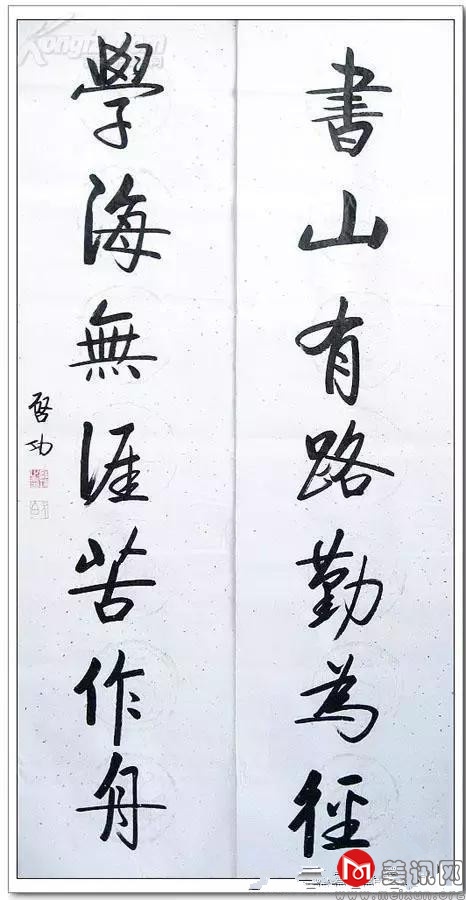 書山有路勤為徑
學海無涯苦作舟
啓功
美讯网
www.meixun.org